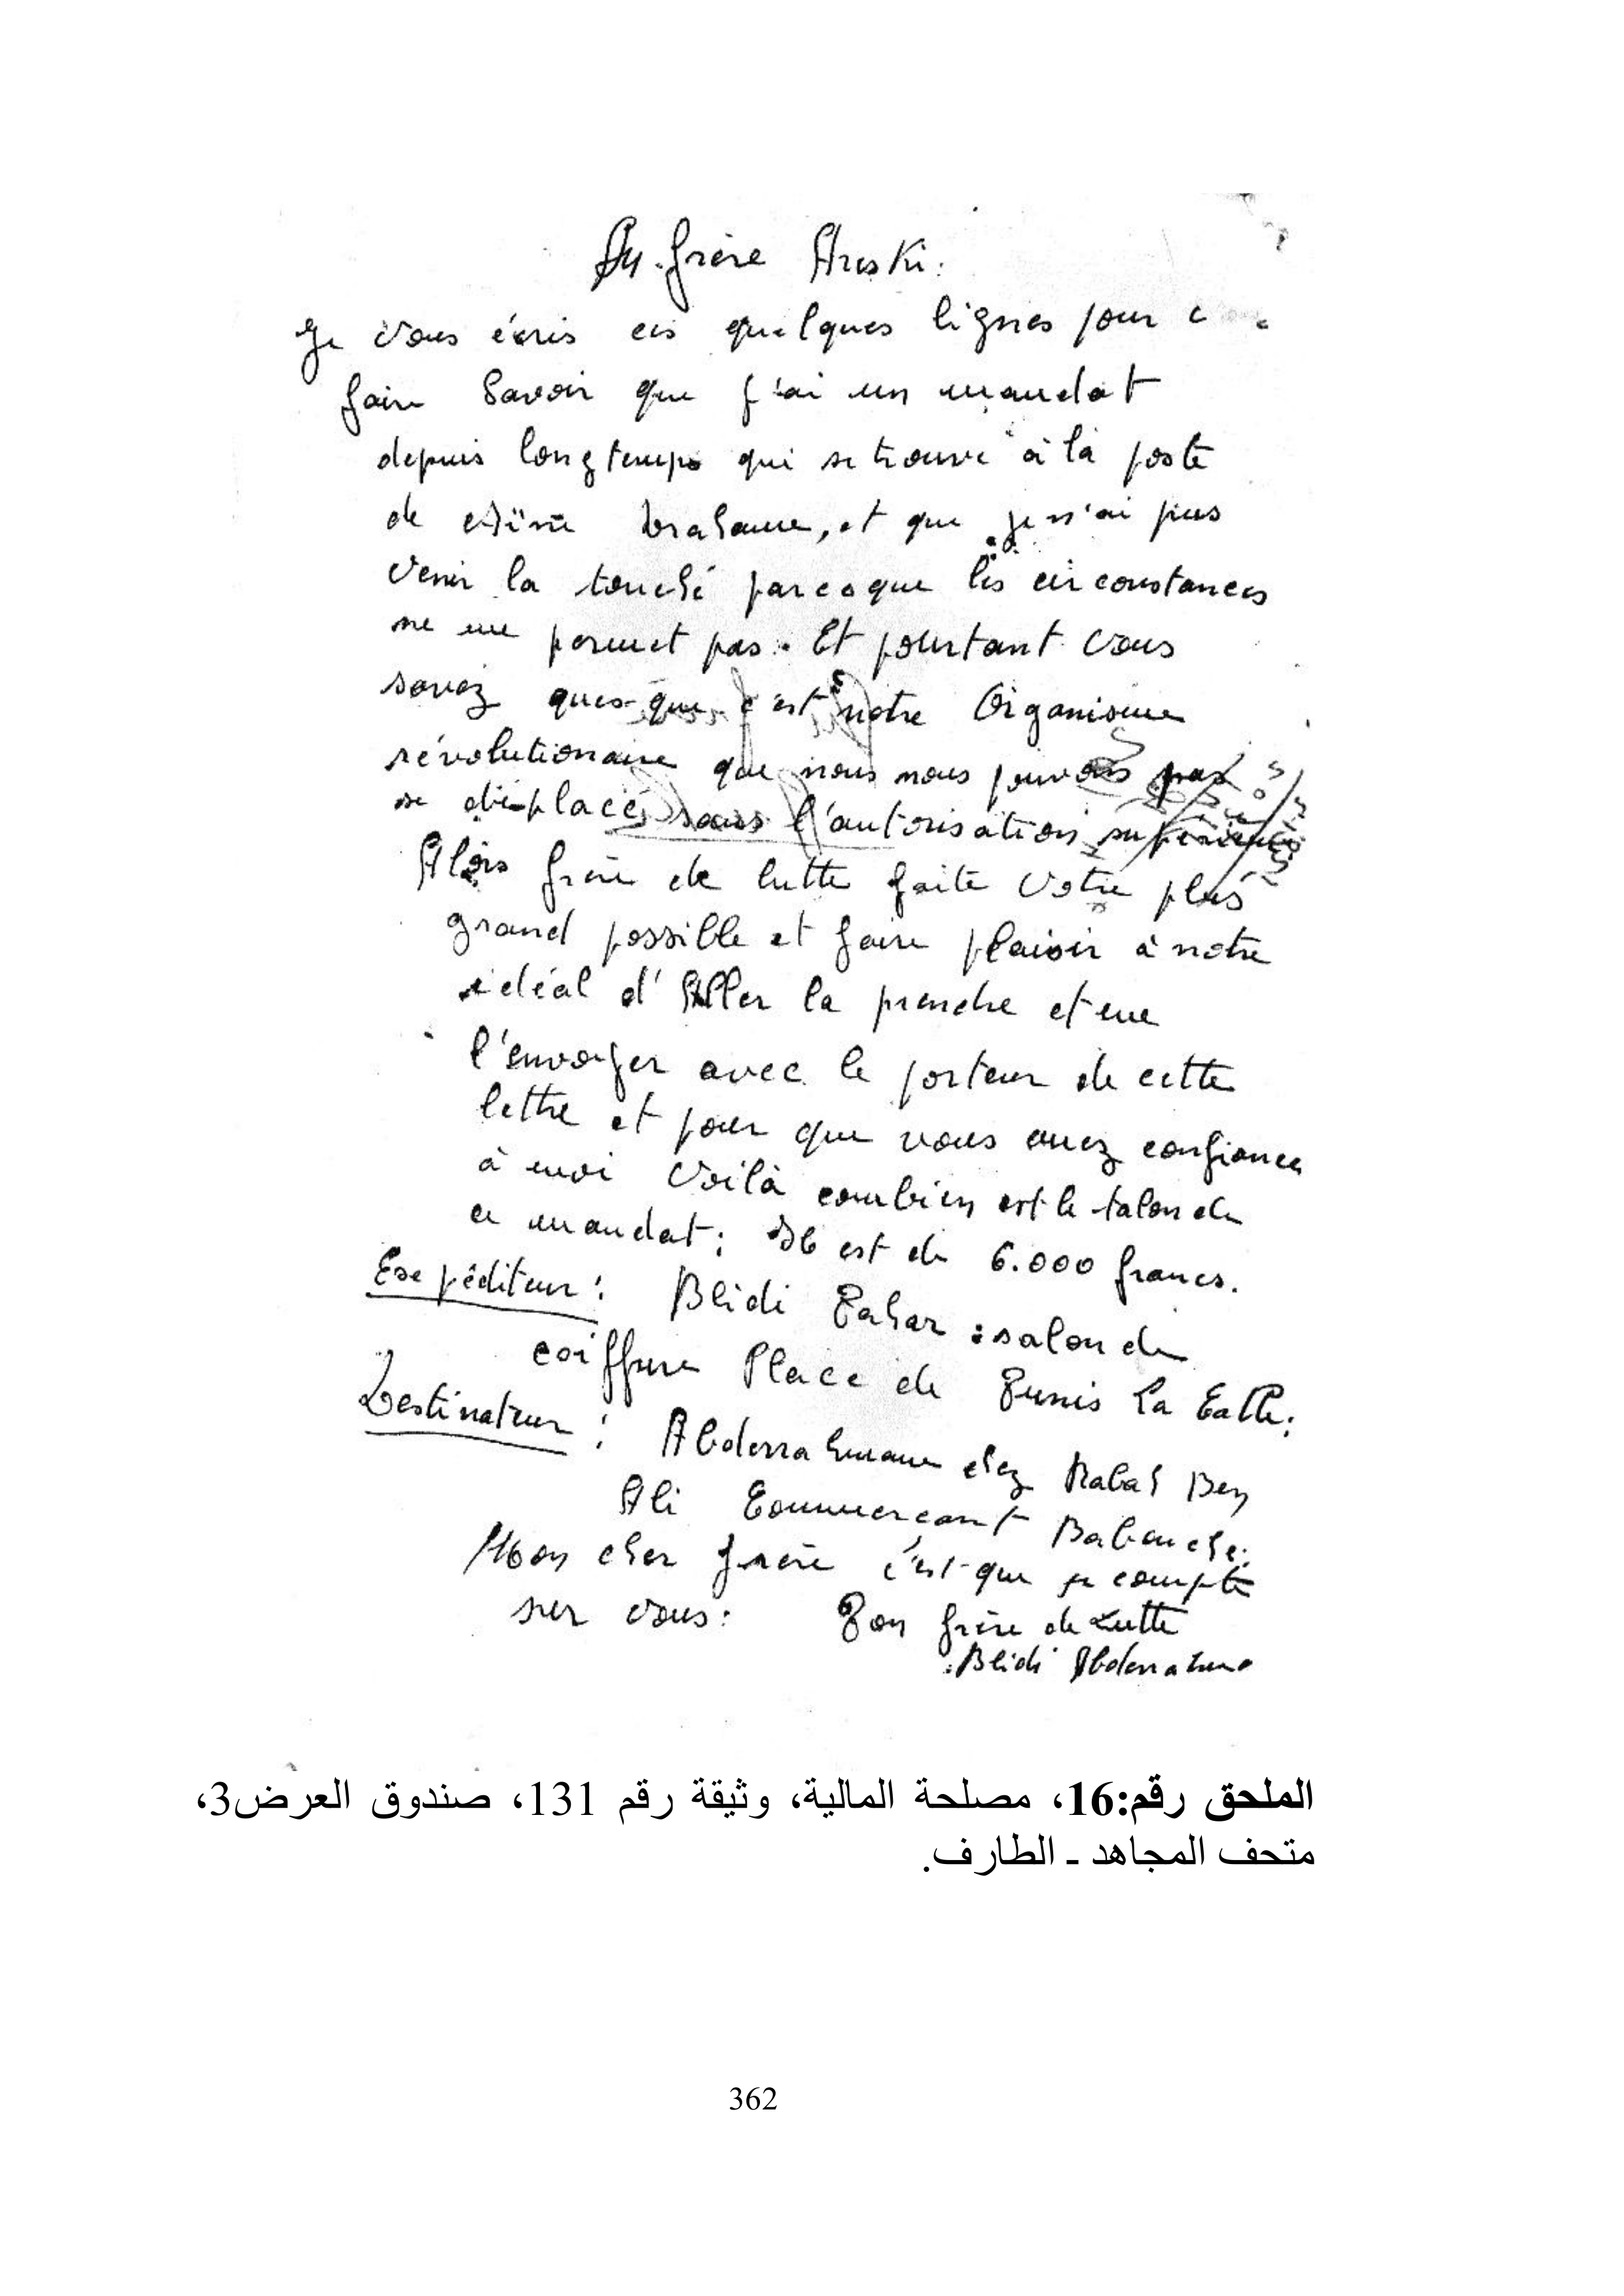 Au frère Areski.
Je vous écris ces quelques lignes pour
faire savoir que j'ai un mandat
depuis longtemps qui se trouve à la poste
de brahame, et que je n'ai pus
venir la touché parcoque les circonstances
ne me permet pas. Et pourtant vous
savez ques-que c'est notre Organisme
révolutionaire que nous nous pouvons pas
se déplacé sans l'autorisation supérieure
Alors frère de lutte faite votre plus
grand possible et faire plaisir à notre
idéal d'Aller la prendre et me
l'envoyer avec le porteur de cette
lettre et pour que vous avez confiance
à moi Voilà combien est le talon de
ce mandat: Il est de 6.000 francs.
Expéditeur: Blidi Tahar : salon de
coiffure Place de Tunis La Calle.
Destinateur: Abderrahmane chez Rabah Ben
Ali Commerçant Babouche.
Mon cher frère c'est que je compte
sur vous: Ton frère de Lutte
Blidi Abderrahmane
الملحق رقم:16، مصلحة المالية، وثيقة رقم 131، صندوق العرض3،
متحف المجاهد ـ الطارف.
362